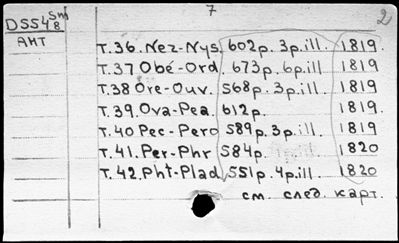 7 2
DSS48 Sm
АНТ
т.36. Nez-Nys. 602p. 3p.ill. 1819.
т.37 Obé-Ord. 673p. 6p.ill 1819.
т.38 Ore-Ouv. 568p. 3p.ill 1819
т.39. Ova-Pea. 612p. 1819
т.40 Pec-Pero 589p. 3p.ill. 1819
т.41. Per-Phr 584p. 1820
т.42. Pht-Plad 551p. 4p.ill. 1820
см. след. карт.